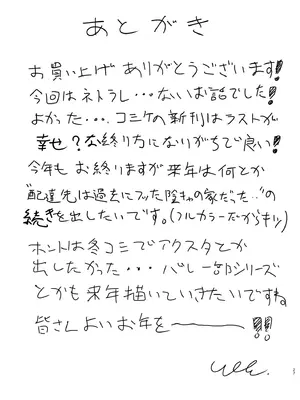 あとがき
お買い上げ ありがとうございます!
今回はネトラレ…ないお話でした!
よかった…. コミケの新刊はラストが
幸せ?な終り方になりがちで良い!
今年も お終りますが来年は何とか
"配達先は過去にフッた陰キャの家だった…"の
続きを出したいです。(フルカラーだからキツ)
ホントは冬コミでアクスタとか
出したかった… バレー部シリーズ
とかも来年描いていきたいですね
皆さんよいお年を――!!